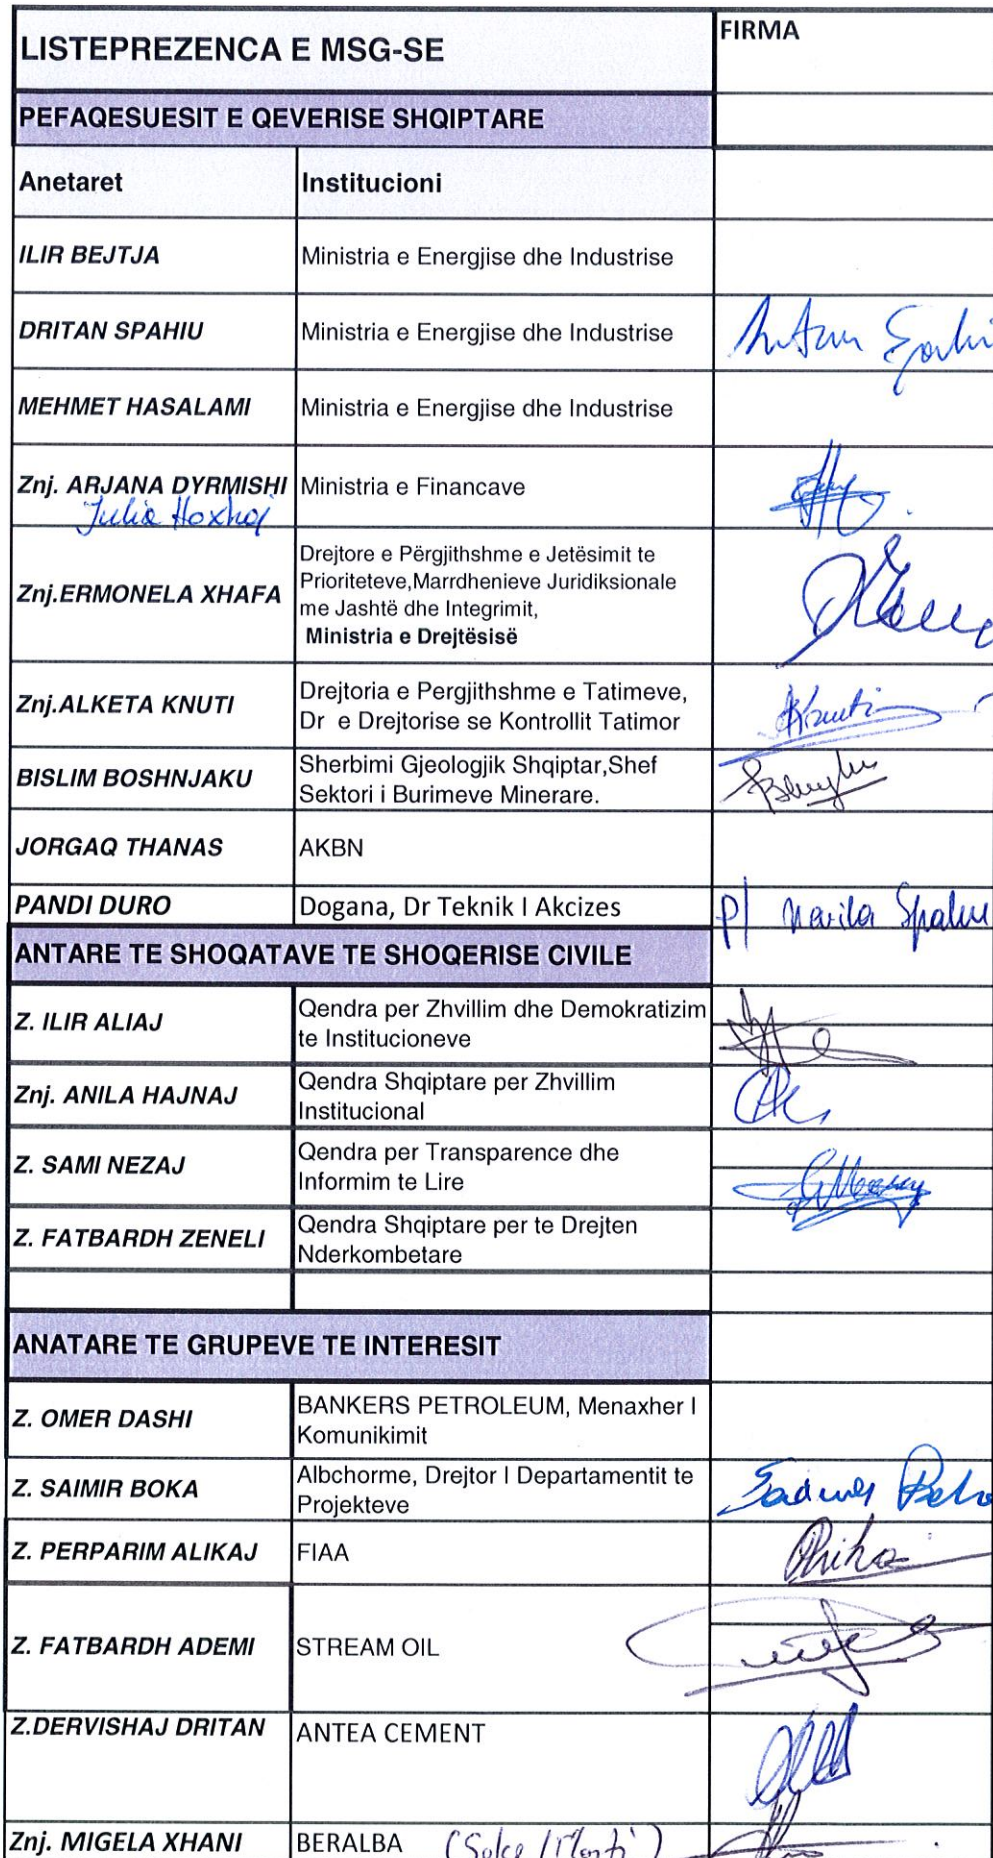 LISTEPREZENCA E MSG-SE
FIRMA
PEFAQESUESIT E QEVERISE SHQIPTARE
Anetaret
Institucioni
ILIR BEJTJA
Ministria e Energjise dhe Industrise
DRITAN SPAHIU
Ministria e Energjise dhe Industrise
MEHMET HASALAMI
Ministria e Energjise dhe Industrise
Znj. ARJANA DYRMISHI
Julia Hoxhaj
Ministria e Financave
Znj.ERMONELA XHAFA
Drejtore e Përgjithshme e Jetësimit te
Prioriteteve,Marrdhenieve Juridiksionale
me Jashtë dhe Integrimit,
Ministria e Drejtësisë
Znj.ALKETA KNUTI
Drejtoria e Pergjithshme e Tatimeve,
Dr e Drejtorise se Kontrollit Tatimor
AKnuti
BISLIM BOSHNJAKU
Sherbimi Gjeologjik Shqiptar,Shef
Sektori i Burimeve Minerare.
JORGAQ THANAS
AKBN
PANDI DURO
Dogana, Dr Teknik I Akcizes
p/ Spahiu
ANTARE TE SHOQATAVE TE SHOQERISE CIVILE
Z. ILIR ALIAJ
Qendra per Zhvillim dhe Demokratizim
te Institucioneve
Znj. ANILA HAJNAJ
Qendra Shqiptare per Zhvillim
Institucional
Z. SAMI NEZAJ
Qendra per Transparence dhe
Informim te Lire
Z. FATBARDH ZENELI
Qendra Shqiptare per te Drejten
Nderkombetare
ANATARE TE GRUPEVE TE INTERESIT
Z. OMER DASHI
BANKERS PETROLEUM, Menaxher I
Komunikimit
Z. SAIMIR BOKA
Albchorme, Drejtor I Departamentit te
Projekteve
Z. PERPARIM ALIKAJ
FIAA
Z. FATBARDH ADEMI
STREAM OIL
Z.DERVISHAJ DRITAN
ANTEA CEMENT
Znj. MIGELA XHANI
BERALBA